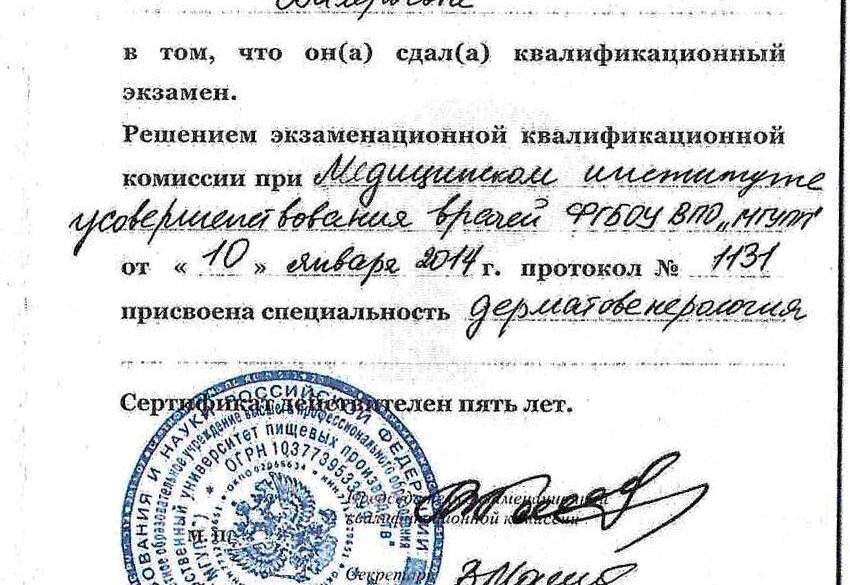 в том, что он(а) сдал(а) квалификационный
экзамен.
Решением экзаменационной квалификационной
комиссии при Медицинском институте
усовершенствования врачей ФГБОУ ВПО „МГУПП"
от « 10 » января 2014 г. протокол № 1131
присвоена специальность дерматовенерология
Сертификат действителен пять лет.
НАУКИ РОССИЙСКОЙ ФЕДЕРАЦИИ
образовательное учреждение высшего профессионального образования
университет пищевых производств
ОГРН 1037739533
М. П.
Председатель экзаменационной
квалификационной комиссии
Секретарь